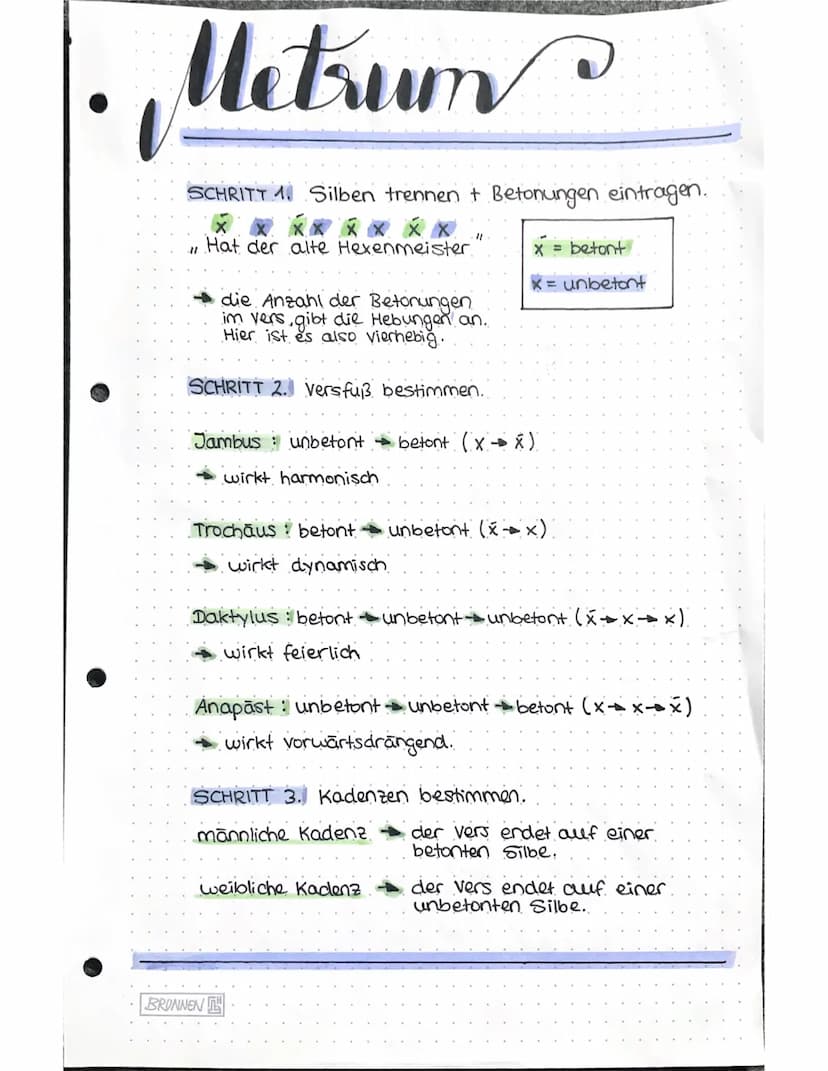 Metrum
SCHRITT 1. Silben trennen + Betonungen eintragen.
x́ x x́ x x́ x x́ x
„Hat der alte Hexenmeister"
x́ = betont
x = unbetont
→ die Anzahl der Betonungen
im Vers, gibt die Hebungen an.
Hier ist es also vierhebig.
SCHRITT 2. Versfuß bestimmen.
Jambus: unbetont → betont (x → x́)
→ wirkt harmonisch
Trochäus: betont → unbetont (x́ → x)
→ wirkt dynamisch
Daktylus: betont → unbetont → unbetont (x́ → x → x)
→ wirkt feierlich
Anapäst: unbetont → unbetont → betont (x → x → x́)
→ wirkt vorwärtsdrängend.
SCHRITT 3. Kadenzen bestimmen.
männliche Kadenz → der Vers endet auf einer
betonten Silbe.
weibliche Kadenz → der Vers endet auf einer
unbetonten Silbe.
BRUNNEN